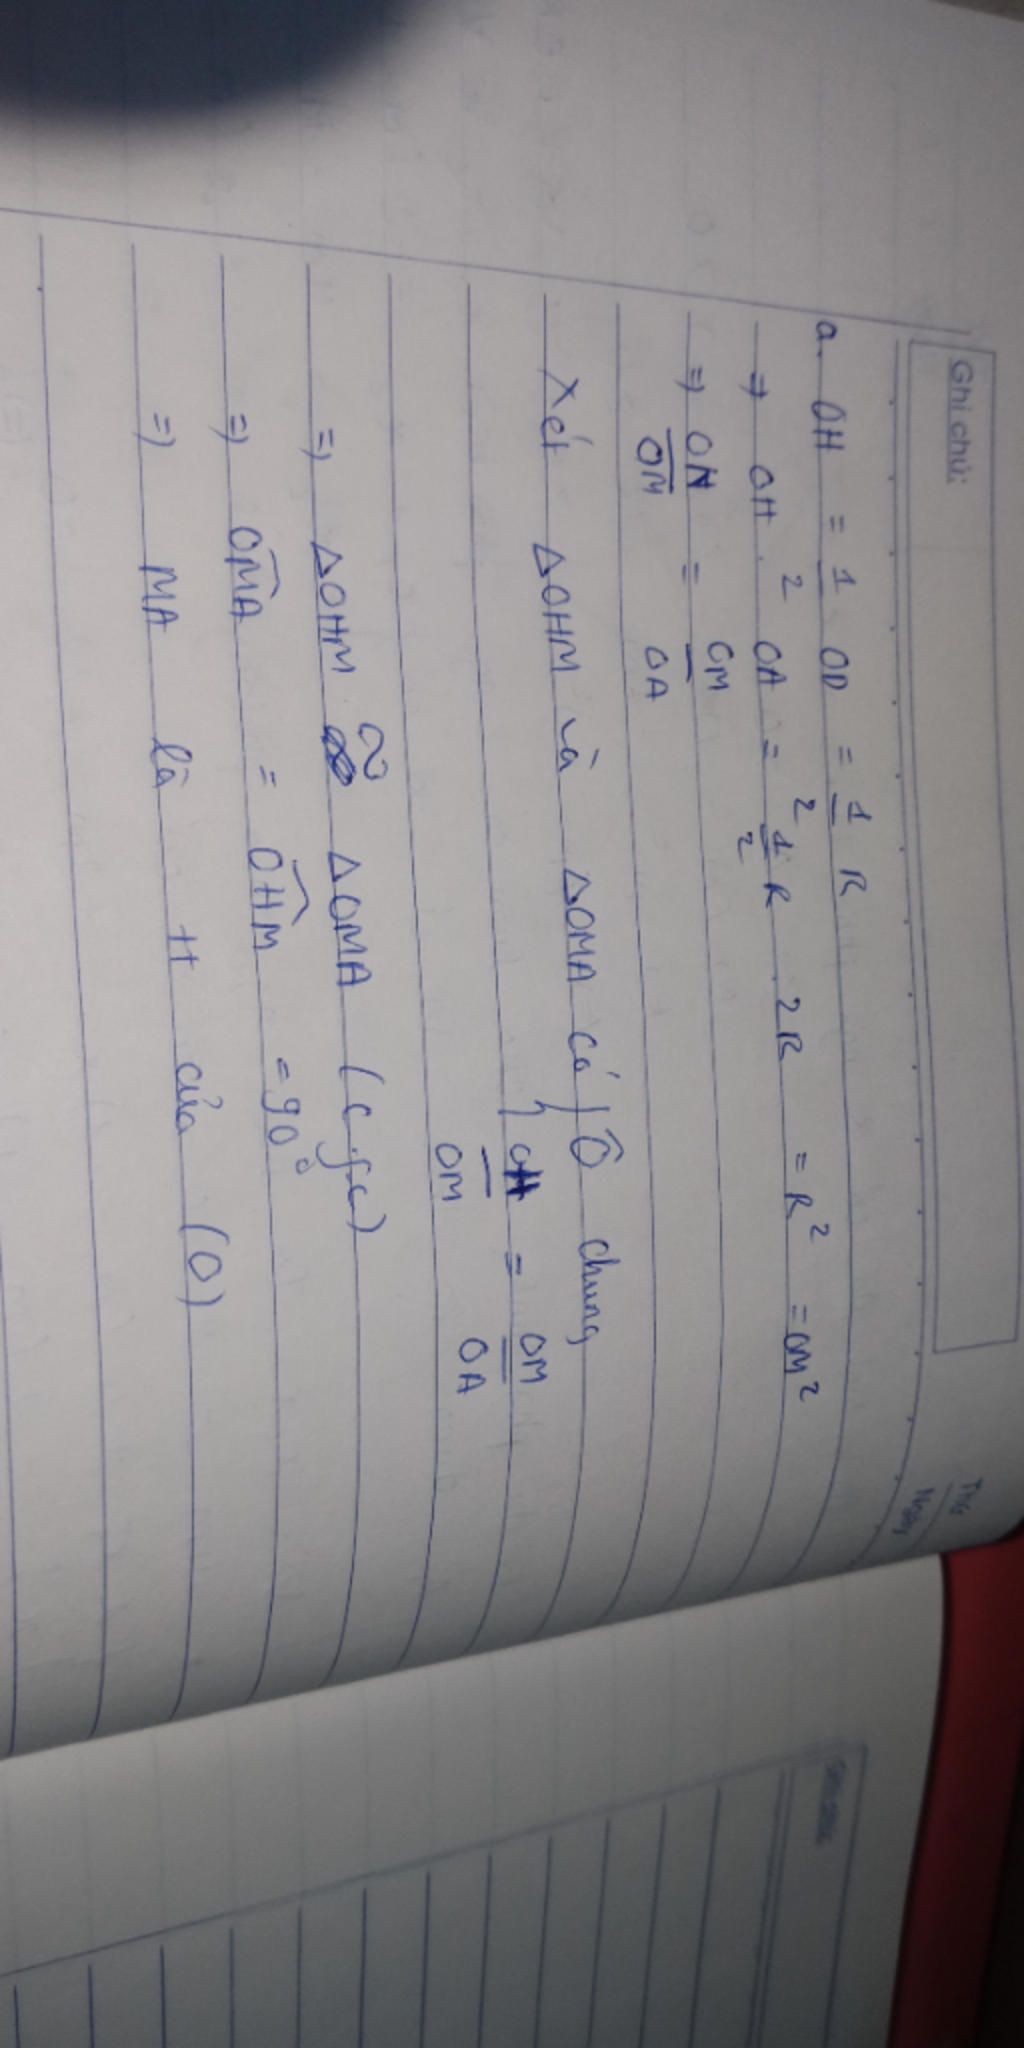 Ghi chú:
Thứ
Ngày
a. OH = 1/2 OD = 1/2 R
=> OH . OA = 1/2 R . 2R = R² = OM²
=> OH/OM = OM/OA
Xét ΔOHM và ΔOMA có { Ô chung
OH/OM = OM/OA
=> ΔOHM ∽ ΔOMA (c.g.c)
=> OMA = OHM = 90°
=> MA là tt của (O)